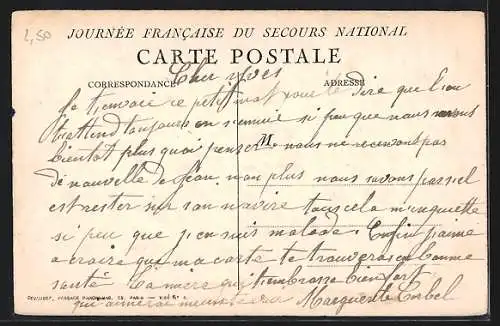 1,50
JOURNÉE FRANÇAISE DU SECOURS NATIONAL
CARTE POSTALE
CORRESPONDANCE
ADRESSE
Cher
Je t'envoie ce petit mot pour te dire que l'on
t'attend toujours on s'ennuie si peu que nous
M.
bientot plus quoi penser nous ne recevons pas
de nouvelle de Jean non plus nous savons pas s'il
est rester sur son navire tous cela m'inquiette
si peu que j'en suis malade. Enfin j'aime
a croire que ma carte te trouvera en bonne
santé t'embrasse bien fort
qui aimerai
Marguerite Corbel